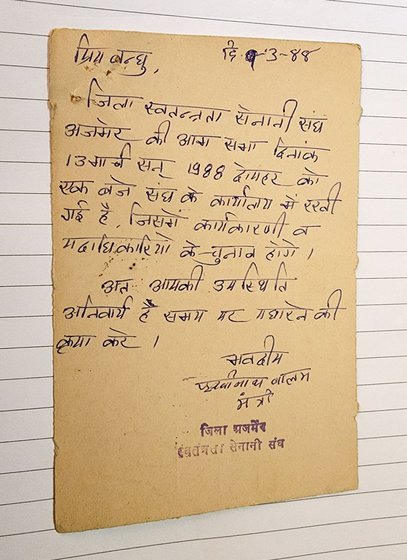 प्रिय बन्धु,
दि 9-3-88
जिला स्वतन्त्रता सेनानी संघ
अजमेर की आम सभा दिनांक
13 मार्च सन् 1988 दोपहर को
एक बजे संघ के कार्यालय में रखी
गई है, जिसमें कार्यकारणी व
पदाधिकारियो के चुनाव होगे।
अतः आपकी उपस्थिति
अनिवार्य है समय पर पधारने की
कृपा करे।
भवदीय
मंत्री
जिला अजमेर
स्वतंत्रता सेनानी संघ